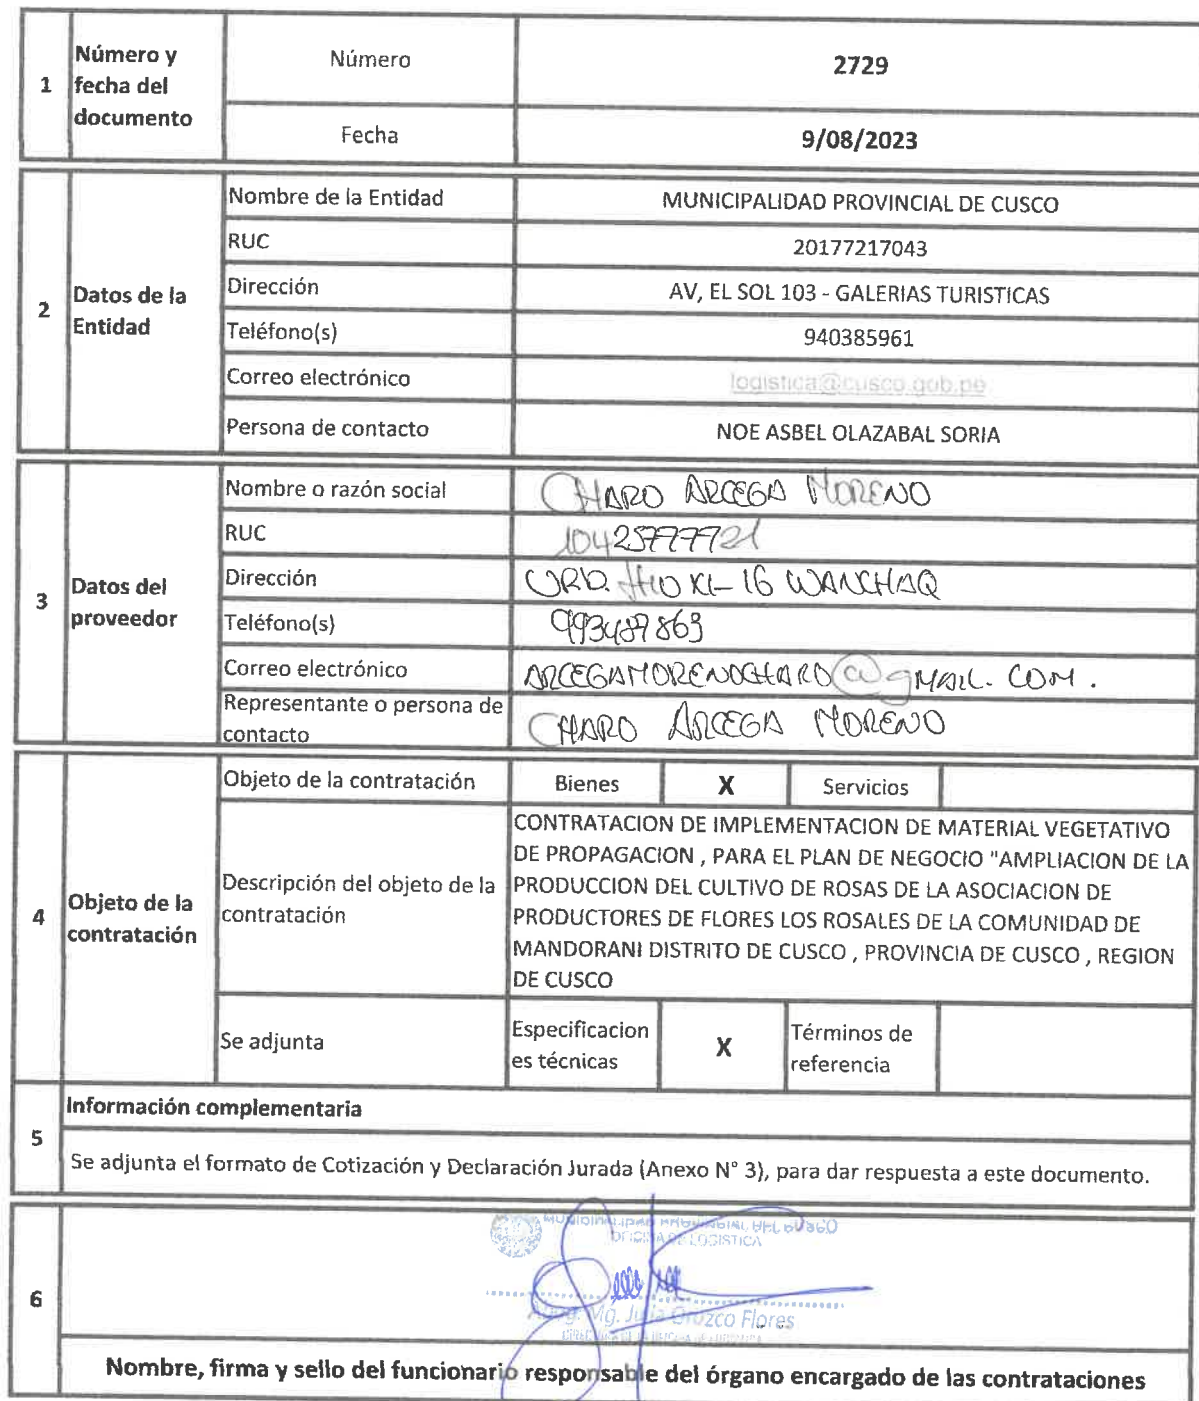 1
Número y
fecha del
documento
Número
2729
Fecha
9/08/2023
2
Datos de la
Entidad
Nombre de la Entidad
MUNICIPALIDAD PROVINCIAL DE CUSCO
RUC
20177217043
Dirección
AV, EL SOL 103 - GALERIAS TURISTICAS
Teléfono(s)
940385961
Correo electrónico
logistica@cusco.gob.pe
Persona de contacto
NOE ASBEL OLAZABAL SORIA
3
Datos del
proveedor
Nombre o razón social
CHARO ARCEGA MORENO
RUC
10425777721
Dirección
URB. TTIO K1-16 WANCHAQ
Teléfono(s)
993487863
Correo electrónico
ARCEGAMORENOCHARO@GMAIL.COM.
Representante o persona de
contacto
CHARO ARCEGA MORENO
4
Objeto de la
contratación
Objeto de la contratación
Bienes
X
Servicios
Descripción del objeto de la
contratación
CONTRATACION DE IMPLEMENTACION DE MATERIAL VEGETATIVO
DE PROPAGACION , PARA EL PLAN DE NEGOCIO "AMPLIACION DE LA
PRODUCCION DEL CULTIVO DE ROSAS DE LA ASOCIACION DE
PRODUCTORES DE FLORES LOS ROSALES DE LA COMUNIDAD DE
MANDORANI DISTRITO DE CUSCO , PROVINCIA DE CUSCO , REGION
DE CUSCO
Se adjunta
Especificacion
es técnicas
X
Términos de
referencia
5
Información complementaria
Se adjunta el formato de Cotización y Declaración Jurada (Anexo N° 3), para dar respuesta a este documento.
6
MUNICIPALIDAD PROVINCIAL DEL CUSCO
OFICINA DE LOGISTICA
Abog. Mg. Julia Orozco Flores
Nombre, firma y sello del funcionario responsable del órgano encargado de las contrataciones